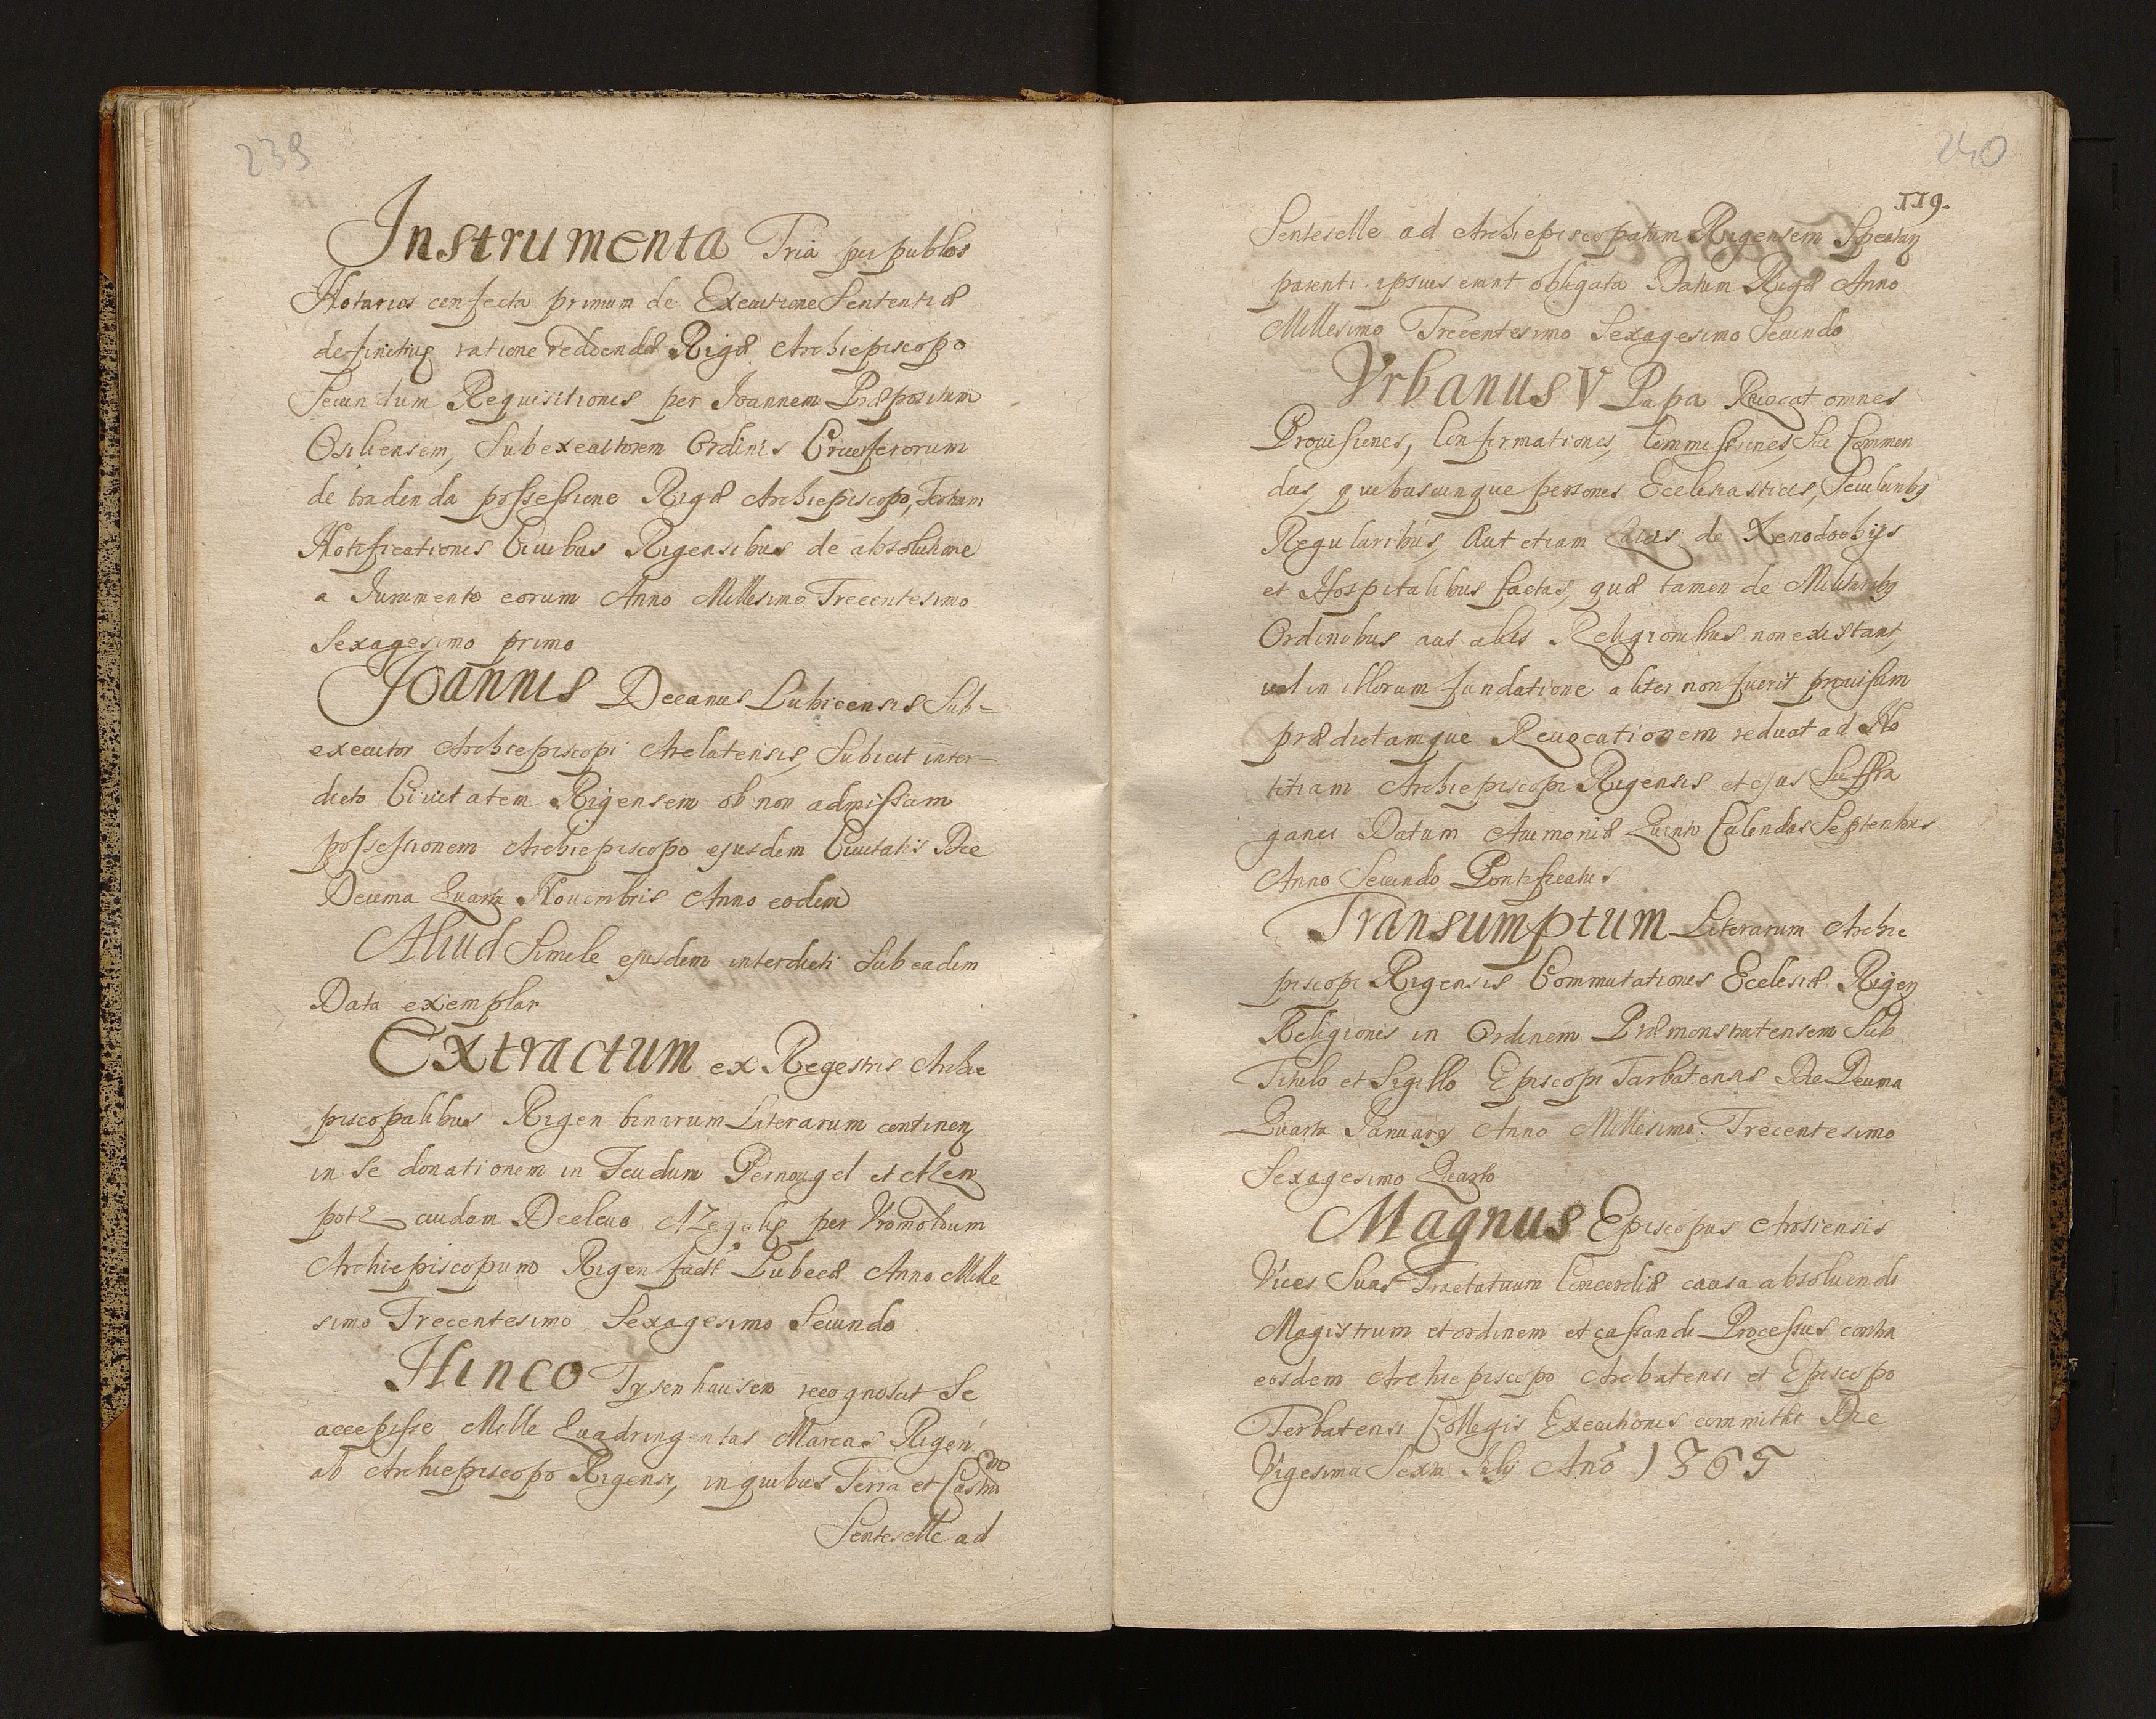 239
Instrumenta Tria per publos
Notarios confecta primum de Executione Sententiæ
definitiuę ratione reddendæ Rigæ Archiepiscopo
Secundum Requisitionis per Joannem Præpositum
Osiliensem, Subexecutorem Ordinis Cruciferorum
de tradenda possessione Rigæ Archiepiscopo, Tertium
Notificationis Ciuibus Rigensibus de absolutione
a Juramento eorum Anno Millesimo Trecentesimo
Sexagesimo primo
Joannis Decanus Lubicensis Sub-
executor Archiepiscopi Arelatensis, Subicit inter-
dicto Ciuitatem Rigensem ob non admissam
possessionem Archiepiscopo ejusdem Ciuitatis Die
Decima Quarta Nouembris Anno eodem
Aliud Simile ejusdem interdicti Sub eadem
Data exemplar
Extractum ex Regestris Archie
piscopalibus Rigen binarum Literarum continen
in se donationem in Feudum Pernougel et
cuidam per Vromoldum
Archiepiscopum Rigen Lubecæ Anno Mille
simo Trecentesimo Sexagesimo Secundo
Hinco Tysenhausen recognoscit Se
accepisse Mille Quadringentas Marcas Rigen
ab Archiepiscopo Rigensi, in quibus Terra et Castrum
Senteselle ad
240
119.
Senteselle ad Archiepiscopatum Rigensem Spectan
parenti ipsius erant obligata Datum Rigæ Anno
Millesimo Trecentesimo Sexagesimo Secundo
Vrbanus V Papa Reuocat omnes
Prouisiones, Confirmationes, Commissiones, Siue Commen
das, quibuscunque personis Eclesiasticis, Secularibq
Regularibus, Aut etiam Laicis de Xenodochijs
et Hospitalibus factas, quæ tamen de Militaribq
Ordinibus aut alijs Religionibus non existant,
uel in illorum fundatione aliter non fuerit prouisum
prædictamque Reuocationem reducat ad No
titiam Archiepiscopi Rigensis et ejus Suffra
ganei Datum Auinionis Quinto Calendas Septembris
Anno Secundo Pontificatus
Transumptum Literarum Archie
piscopi Rigensis Commutationis Eclesiæ Rigen
Religionis in Ordinem Præmonstratensem Sub
Titulo et Sigillo Episcopi Tarbatensis Die Decima
Quarta Januarij Anno Millesimo Trecentesimo
Sexagesimo Quarto
Magnus Episcopus Arosiensis
Vices Suas Tractatuum Concordiæ causa absoluendi
Magistrum et ordinem et cassandi Processus contra
eosdem Archiepiscopo et Episcopo
Terbatensi Collegis Executionis committit Die
Vigesima Sexta Julij Ano 1365